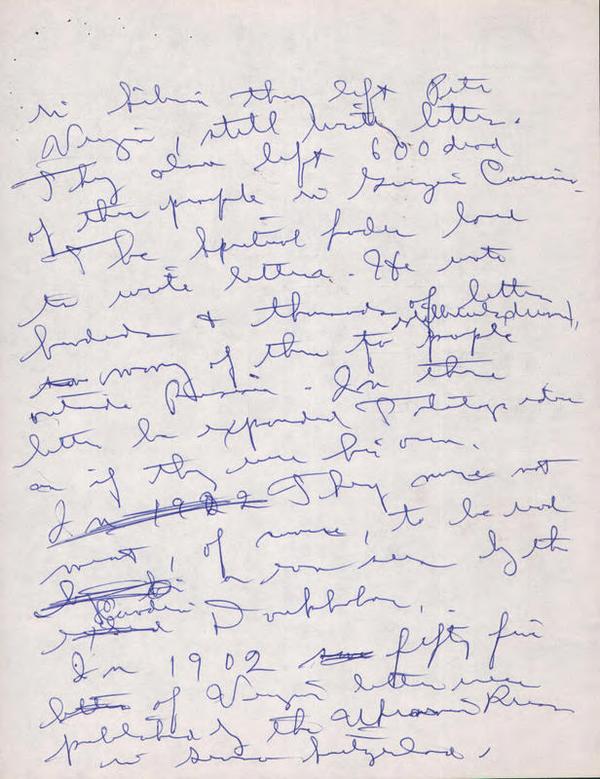 in Siberia they left Peter
Verigin, still writing letters.
They also left 600 dead
of their people in Georgia Caucasus.
The spiritual leader loved
to write letters. He wrote
hundreds & thousands of letters
many of them to people
outside Russia. In these
letters he expounded Tolstoy's ideas
as if they were his own.
In 1902 They were not
meant, of course, to be read
or even seen by the
Doukhobors.
In 1902 fifty five
of Verigin letters were
published by the Press
in Geneva Switzerland.